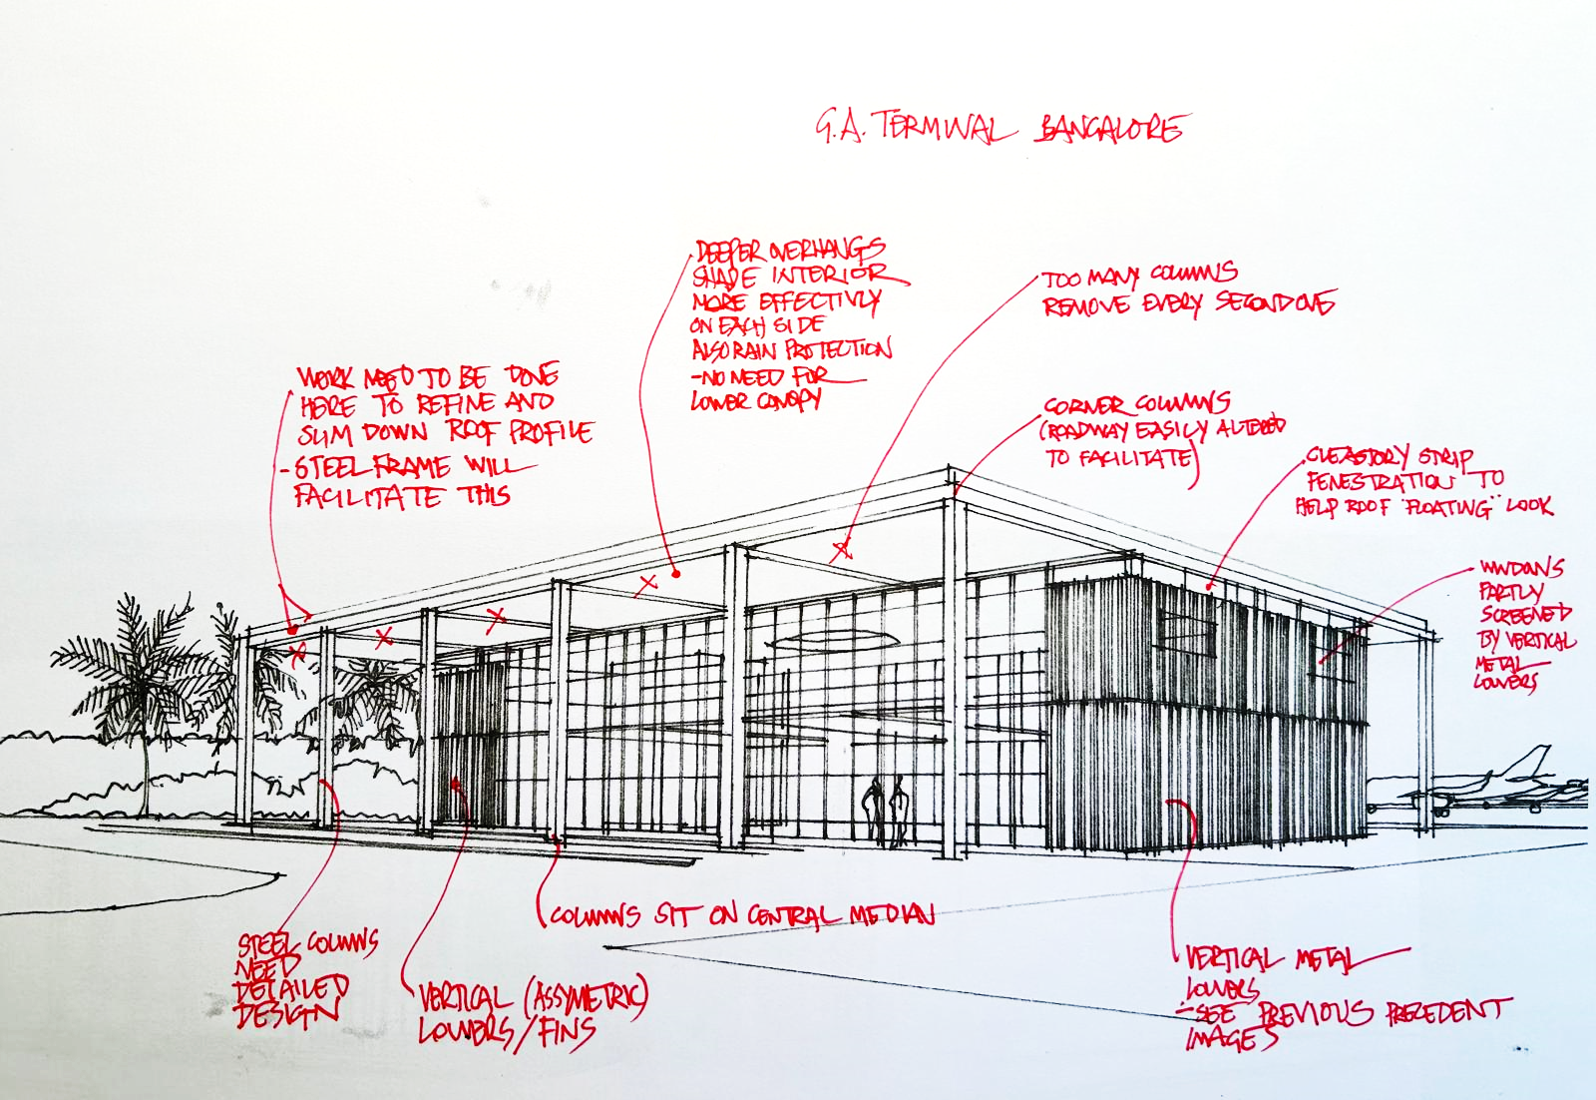 G.A. TERMINAL BANGALORE
DEEPER OVERHANGS
SHADE INTERIOR
MORE EFFECTIVLY
ON EACH SIDE
ALSO RAIN PROTECTION
-NO NEED FOR
LOWER CANOPY
TOO MANY COLUMNS
REMOVE EVERY SECOND ONE
WORK NEED TO BE DONE
HERE TO REFINE AND
SLIM DOWN ROOF PROFILE
-STEEL FRAME WILL
FACILITATE THIS
CORNER COLUMNS
(ROADWAY EASILY ALTERED
TO FACILITATE)
CLEASTORY STRIP
FENESTRATION TO
HELP ROOF "FLOATING" LOOK
WINDOWS
PARTLY
SCREENED
BY VERTICAL
METAL
LOUVERS
COLUMNS SIT ON CENTRAL MEDIAN
STEEL COLUMNS
NEED
DETAILED
DESIGN
VERTICAL (ASSYMETRIC)
LOUVERS/FINS
VERTICAL METAL
LOUVERS
-SEE PREVIOUS PRECEDENT
IMAGES